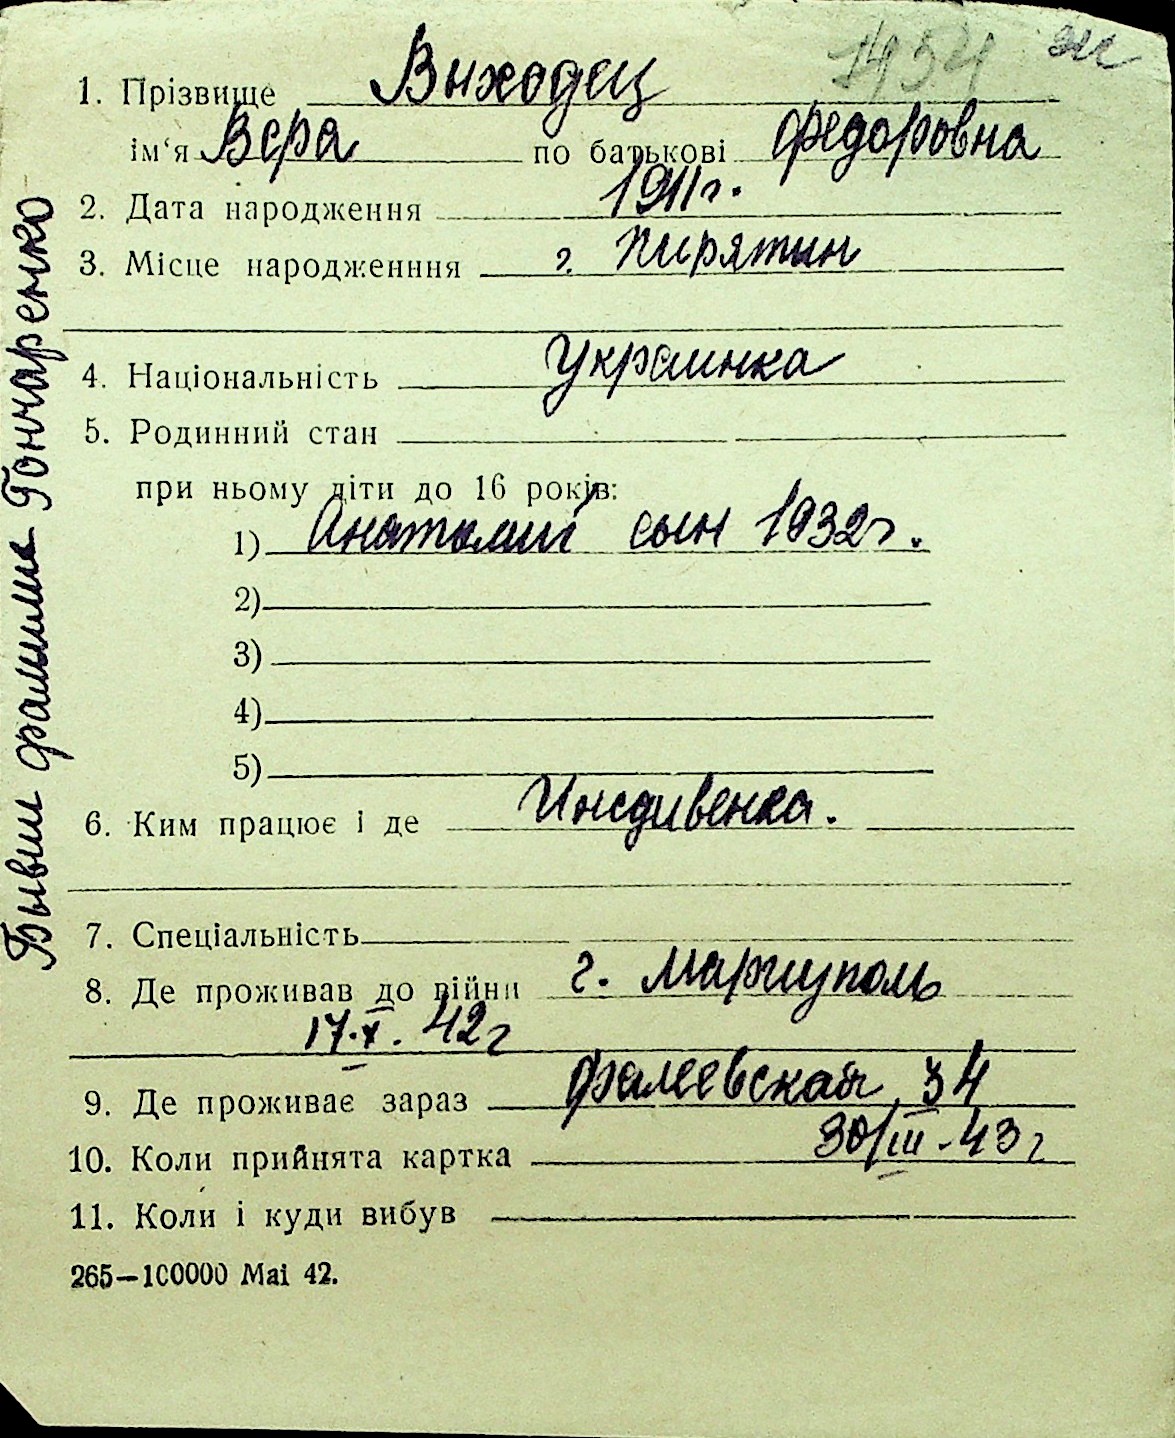 1934 эм
1. Прізвище Выходец
ім‘я Вера по батькові Федоровна
2. Дата народження 1911г.
3. Місце народженння г. Пирятин
4. Національність Украинка
5. Родинний стан
при ньому діти до 16 років:
1) Анатолий сын 1932г.
2)
3)
4)
5)
6. Ким працює і де Иждивенка.
7. Спеціальність
8. Де проживав до війни г. Мариуполь
17.X. 42г
9. Де проживає зараз Фалеевская, 34
10. Коли прийнята картка 30/III-43г
11. Коли і куди вибув
265—100000 Mai 42.
Бывш фамилия Гончаренко